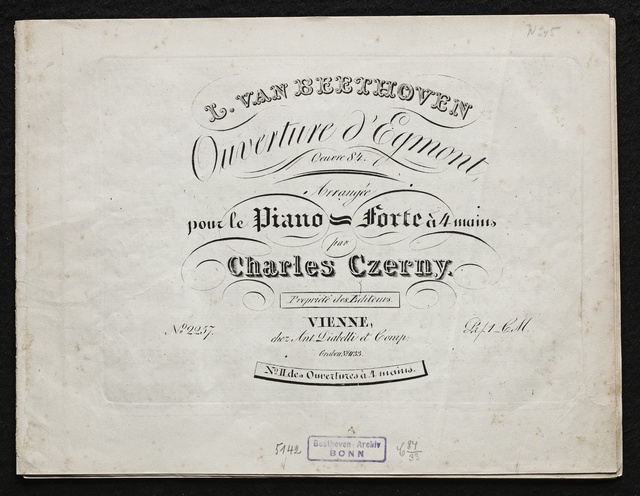 L. VAN BEETHOVEN
Ouverture d'Egmont,
Oeuvre 84.
Arrangée
pour le Piano = Forte à 4 mains
par
Charles Czerny.
Propriété des Editeurs.
VIENNE,
chez Ant. Diabelli et Comp.
Graben No. 1133.
No. 2257.
No. II des Ouvertures à 4 mains.
5142
Beethoven-Archiv
BONN